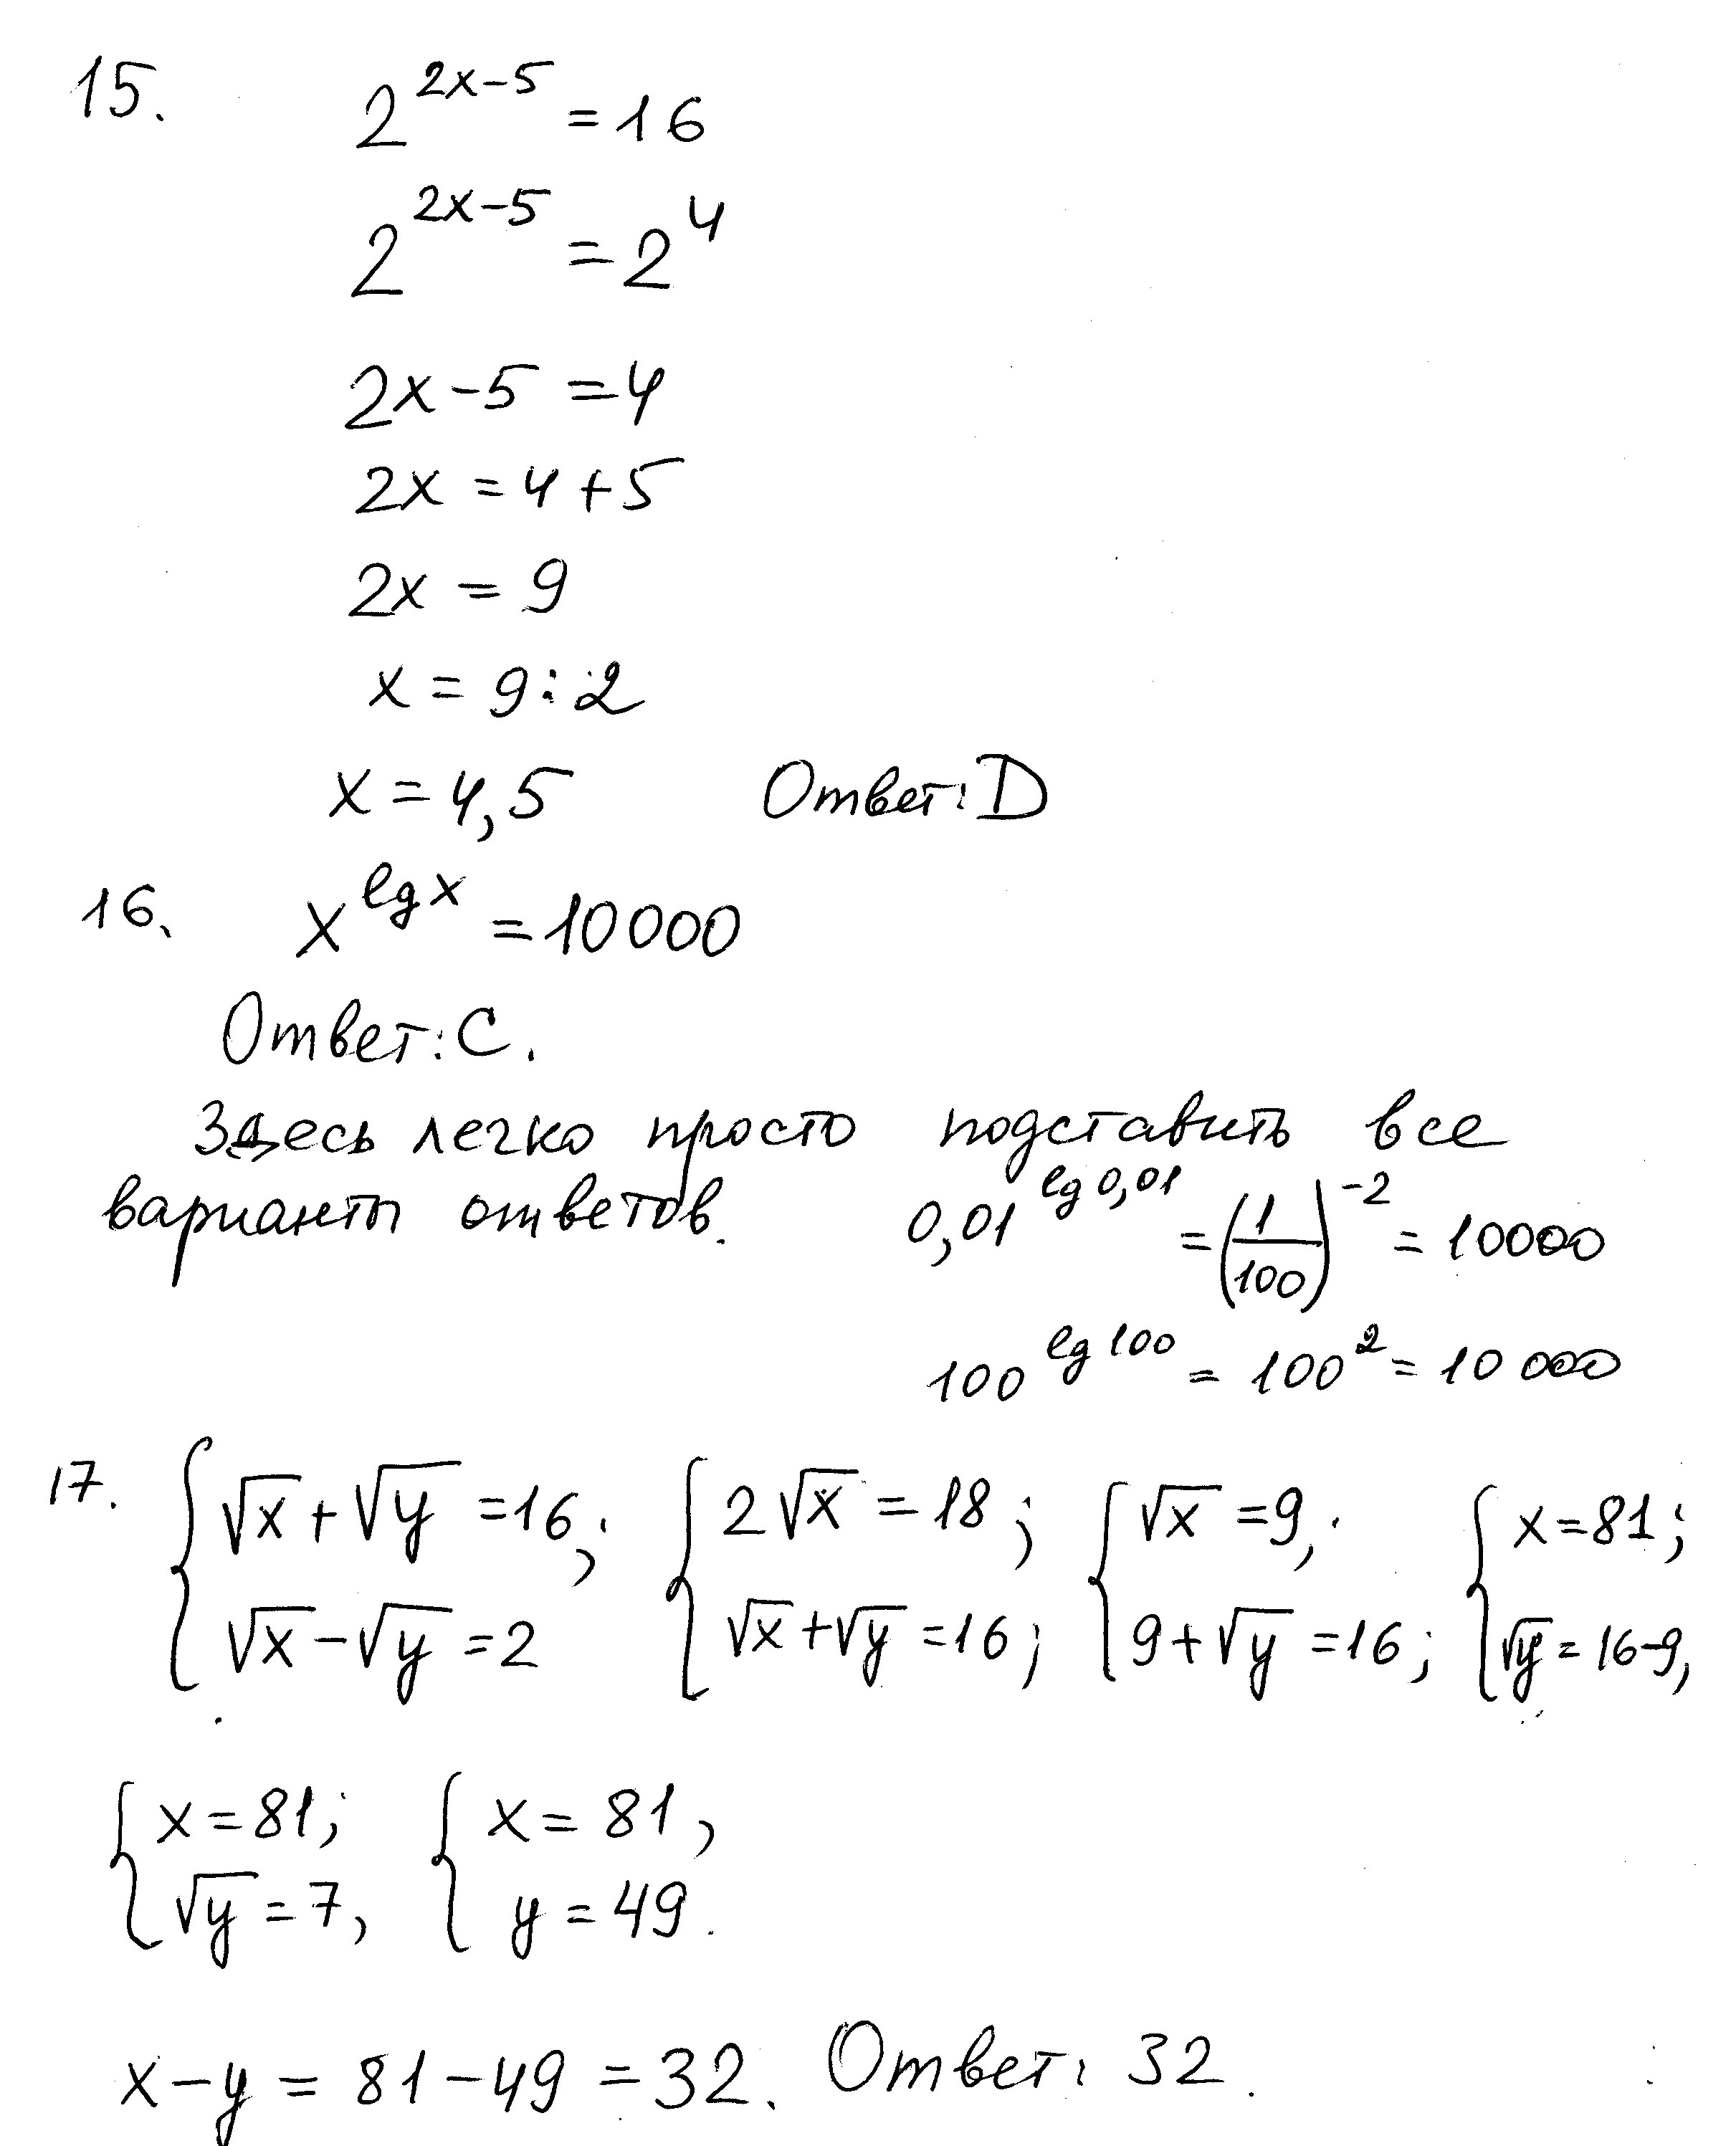 15. 2^{2x-5} = 16
2^{2x-5} = 2^4
2x - 5 = 4
2x = 4 + 5
2x = 9
x = 9 : 2
x = 4,5 Ответ: D
16. x^{lg x} = 10000
Ответ: C.
Здесь легко просто подставить все
варианты ответов. 0,01^{lg 0,01} = (1/100)^{-2} = 10000
100^{lg 100} = 100^2 = 10 000
17. { √x + √y = 16; √x - √y = 2 { 2√x = 18; √x + √y = 16; { √x = 9; 9 + √y = 16; { x = 81; √y = 16-9,
{ x = 81; √y = 7, { x = 81, y = 49.
x - y = 81 - 49 = 32. Ответ: 32.